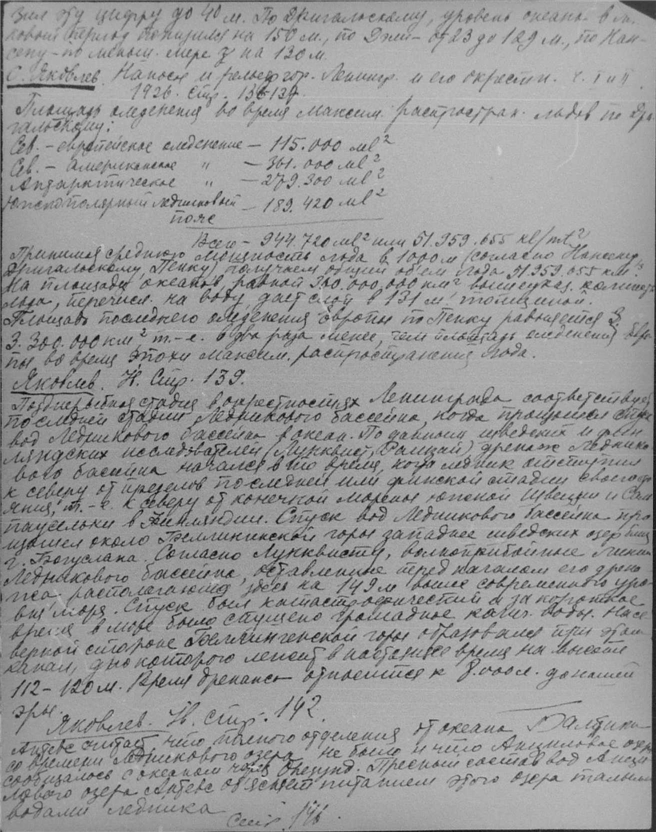 эту цифру до 40 м. По Дригальскому, уровень океана в
период понизился на 150 м., по Дэли - от 23 до 129 м., по Нан-
сену - по меньш. мере на 120 м.
С. Яковлев. Наносы и рельеф гор. Ленингр. и его окрестн. ч. I и II
1926. стр. 136-137.
Площадь оледенения во время максим. распростран. льдов по Дри-
гальскому:
Сев.-европейское оледенение - 115.000 мл²
Сев.-американское " - 361.000 мл²
Антарктическое " - 279.300 мл²
Южнополярный ледниковый - 189.420 мл²
пояс
Всего - 944.720 мл² или 51.959.655 кл/mt²
Принимая среднюю мощность льда в 1000 м (согласно Нансену,
Дригальскому, Пенку) получаем общий объем льда 51.959.655 км³.
На площади океанов, равной 360.000.000 км² вышеуказ. колич.
льда, перечисл. на воду, дает слой в 131 м. толщиной.
Площадь последнего оледенения Европы по Пенку равняется
3.300.000 км² т.-е. в два раза менее, чем площадь оледенения Евро-
пы во время эпохи максим. распространения льда.
Яковлев. Н. Стр. 139.
Позднеледниковая стадия в окрестностях Ленинграда соответствует
последней стадии Ледникового бассейна, когда произошел спуск
вод Ледникового бассейна в океан. По данным шведских и фин-
ляндских исследователей (Мунквист, Рамзай) дренаж Леднико-
вого бассейна начался в то время, когда ледник отступил
к северу от пределов последней или финской стадии своего
т.-е. к северу от конечной морены южной Швеции и Сал-
паусельки в Финляндии. Спуск вод Ледникового бассейна про-
изошел около Биллингенской горы западнее шведских озер близ
г. Согласно Мунквисту, волноприбойные линии
Ледникового бассейна, оставленные перед началом его дрена-
жа располагаются здесь на 149 м выше современного уро-
вня моря. Спуск был катастрофический и за короткое
время в море было спущено громадное колич. воды. На се-
верной стороне Биллингенской горы образовался при этом
канал, дно которого лежит в настоящее время на высоте
112-120 м. Время дренажа относится к 8.000 л. до нашей
эры.
Яковлев. Н. стр. 142.
Антевс считает, что полного отделения от океана Балтики
со времени Ледникового озера не было и что Анциловое озеро
сообщалось с океаном через Эрезунд. Пресный состав вод Анци-
лового озера Антевс объясняет питанием этого озера талыми
водами ледника
стр. 146.